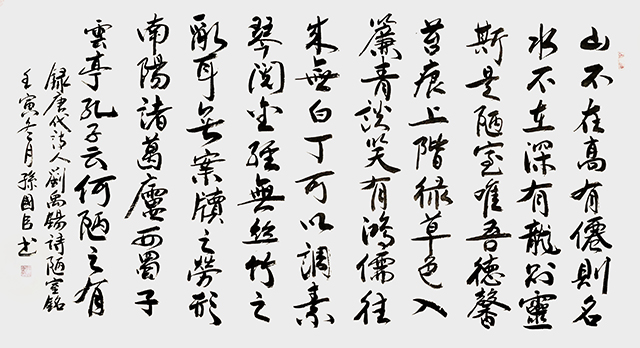 山不在高有僊則名
水不在深有龍則靈
斯是陋室唯吾德馨
苔痕上階綠草色入
簾青談笑有鴻儒往
來無白丁可以調素
琴閱金經無絲竹之
亂耳無案牘之勞形
南陽諸葛廬西蜀子
雲亭孔子云何陋之有
錄唐代詩人劉禹錫詩陋室銘
壬寅冬月孫國臣书